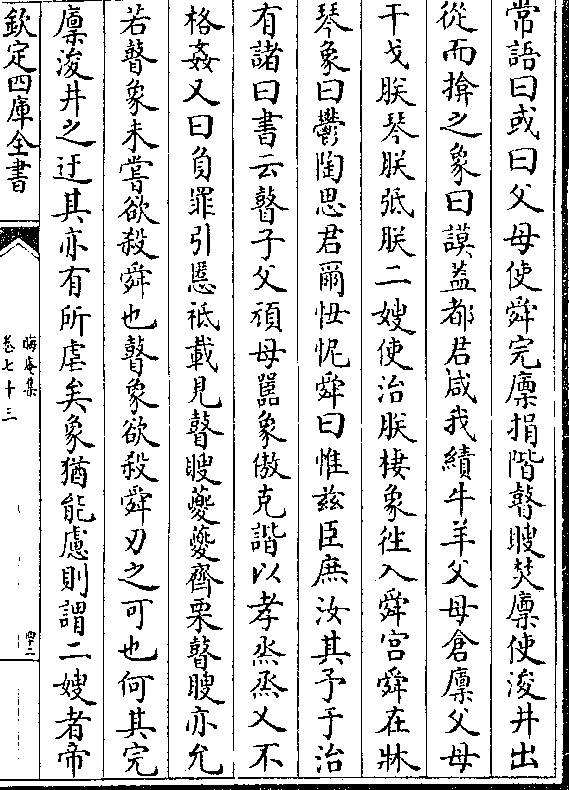 常語曰或曰父母使舜完廪捐階瞽瞍焚廪使浚井出
從而揜之象曰謨葢都君咸我績牛羊父母倉廪父母
干戈朕琴朕弤朕二嫂使治朕棲象徃入舜宫舜在牀
琴象曰鬱陶思君爾忸怩舜曰惟兹臣庶汝其予于治
有諸曰書云瞽子父頑母嚚象傲克諧以孝烝烝乂不
格姦又曰負罪引慝祗載見瞽瞍夔夔齊栗瞽瞍亦允
若瞽象未嘗欲殺舜也瞽象欲殺舜刃之可也何其完
廪浚井之迂其亦有所虐矣象猶能慮則謂二嫂者帝
欽定四庫全書
晦庵集
卷七十三
四十二